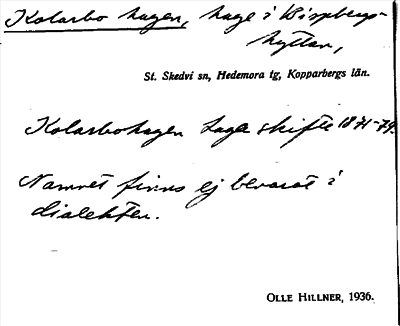 Kolarbo hagen, hage i Bispbergs-
hyttan,
St. Skedvi sn, Hedemora tg, Kopparbergs län.
Kolarbohagen Laga skifte 1871-79.
Namnet finns ej bevarat i
dialekten.
OLLE HILLNER, 1936.